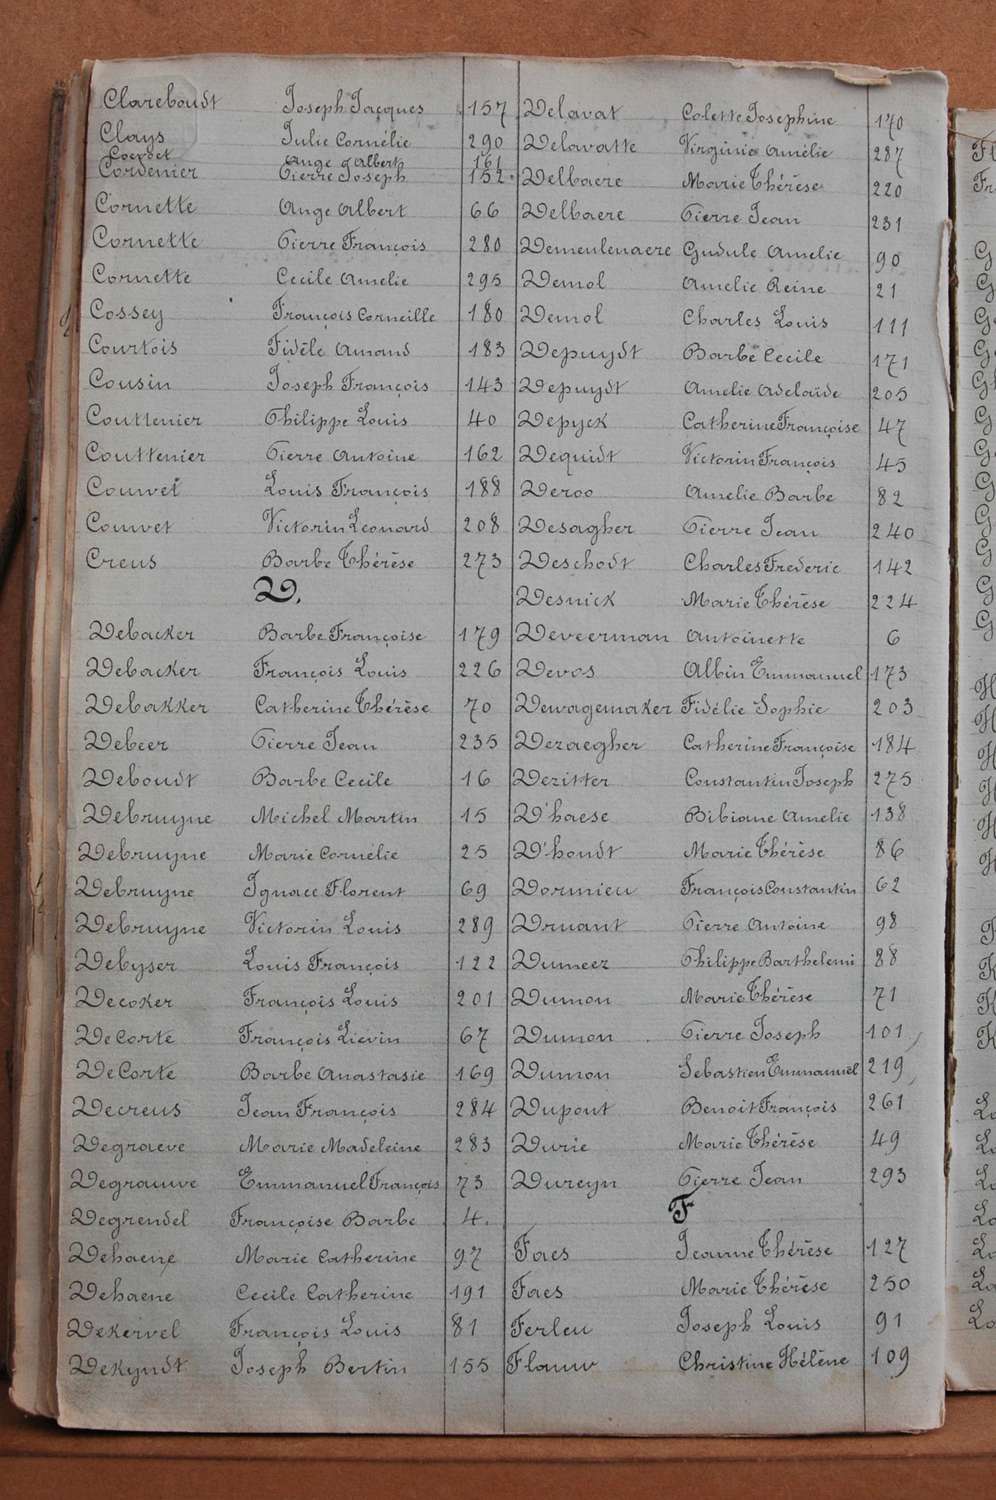 Clareboudt Joseph Jacques 157
Clays Julie Cornélie 290
Coevoet Ange Albert 161
Cordenier Pierre Joseph 152
Cornette Ange Albert 66
Cornette Pierre François 280
Cornette Cecile Amelie 295
Cossey François Corneille 180
Courtois Fidèle Amand 183
Cousin Joseph François 143
Couttenier Philippe Louis 40
Couttenier Pierre Antoine 162
Couvet Louis François 188
Couvet Victorin Leonard 208
Creus Barbe Thérèse 273
D.
Debacker Barbe Françoise 179
Debacker François Louis 226
Debakker Catherine Thérèse 70
Debeer Pierre Jean 235
Deboudt Barbe Cecile 16
Debruyne Michel Martin 15
Debruyne Marie Cornélie 25
Debruyne Ignace Florent 69
Debruyne Victorin Louis 289
Debyser Louis François 122
Decoker François Louis 201
DeCorte François Lievin 67
DeCorte Barbe Anastasie 169
Decreus Jean François 284
Degraeve Marie Madeleine 283
Degrauwe Emmanuel François 73
Degrendel Françoise Barbe 4.
Dehaene Marie Catherine 97
Dehaene Cecile Catherine 191
Dekervel François Louis 81
Dekyndt Joseph Bertin 155
Delavat Colette Josephine 170
Delavatte Virginie Amélie 287
Delbaere Marie Thérèse 220
Delbaere Pierre Jean 231
Demeulenaere Gudule Amelie 90
Demol Amelie Reine 21
Demol Charles Louis 111
Depuydt Barbe Cecile 171
Depuydt Amelie Adelaïde 205
Depyck Catherine Françoise 47
Dequidt Victorin François 45
Deroo Amelie Barbe 82
Desagher Pierre Jean 240
Deschodt Charles Frederic 142
Desnick Marie Thérèse 224
Deveerman Antoinette 6
Devos Albin Emmanuel 173
Dewagemaker Fidélie Sophie 203
Dezaegher Catherine Françoise 184
Dezitter Constantin Joseph 275
D'haese Bibiane Amelie 138
D'hondt Marie Thérèse 86
Dormieu François Constantin 62
Druant Pierre Antoine 98
Dumeez Philippe Barthelemi 88
Dumon Marie Thérèse 71
Dumon Pierre Joseph 101
Dumon Sebastien Emmanuel 219
Dupont Benoit François 261
Durie Marie Thérèse 49
Dureyn Pierre Jean 293
F
Faes Jeanne Thérèse 127
Faes Marie Thérèse 250
Ferleu Joseph Louis 91
Flauw Christine Hélène 109